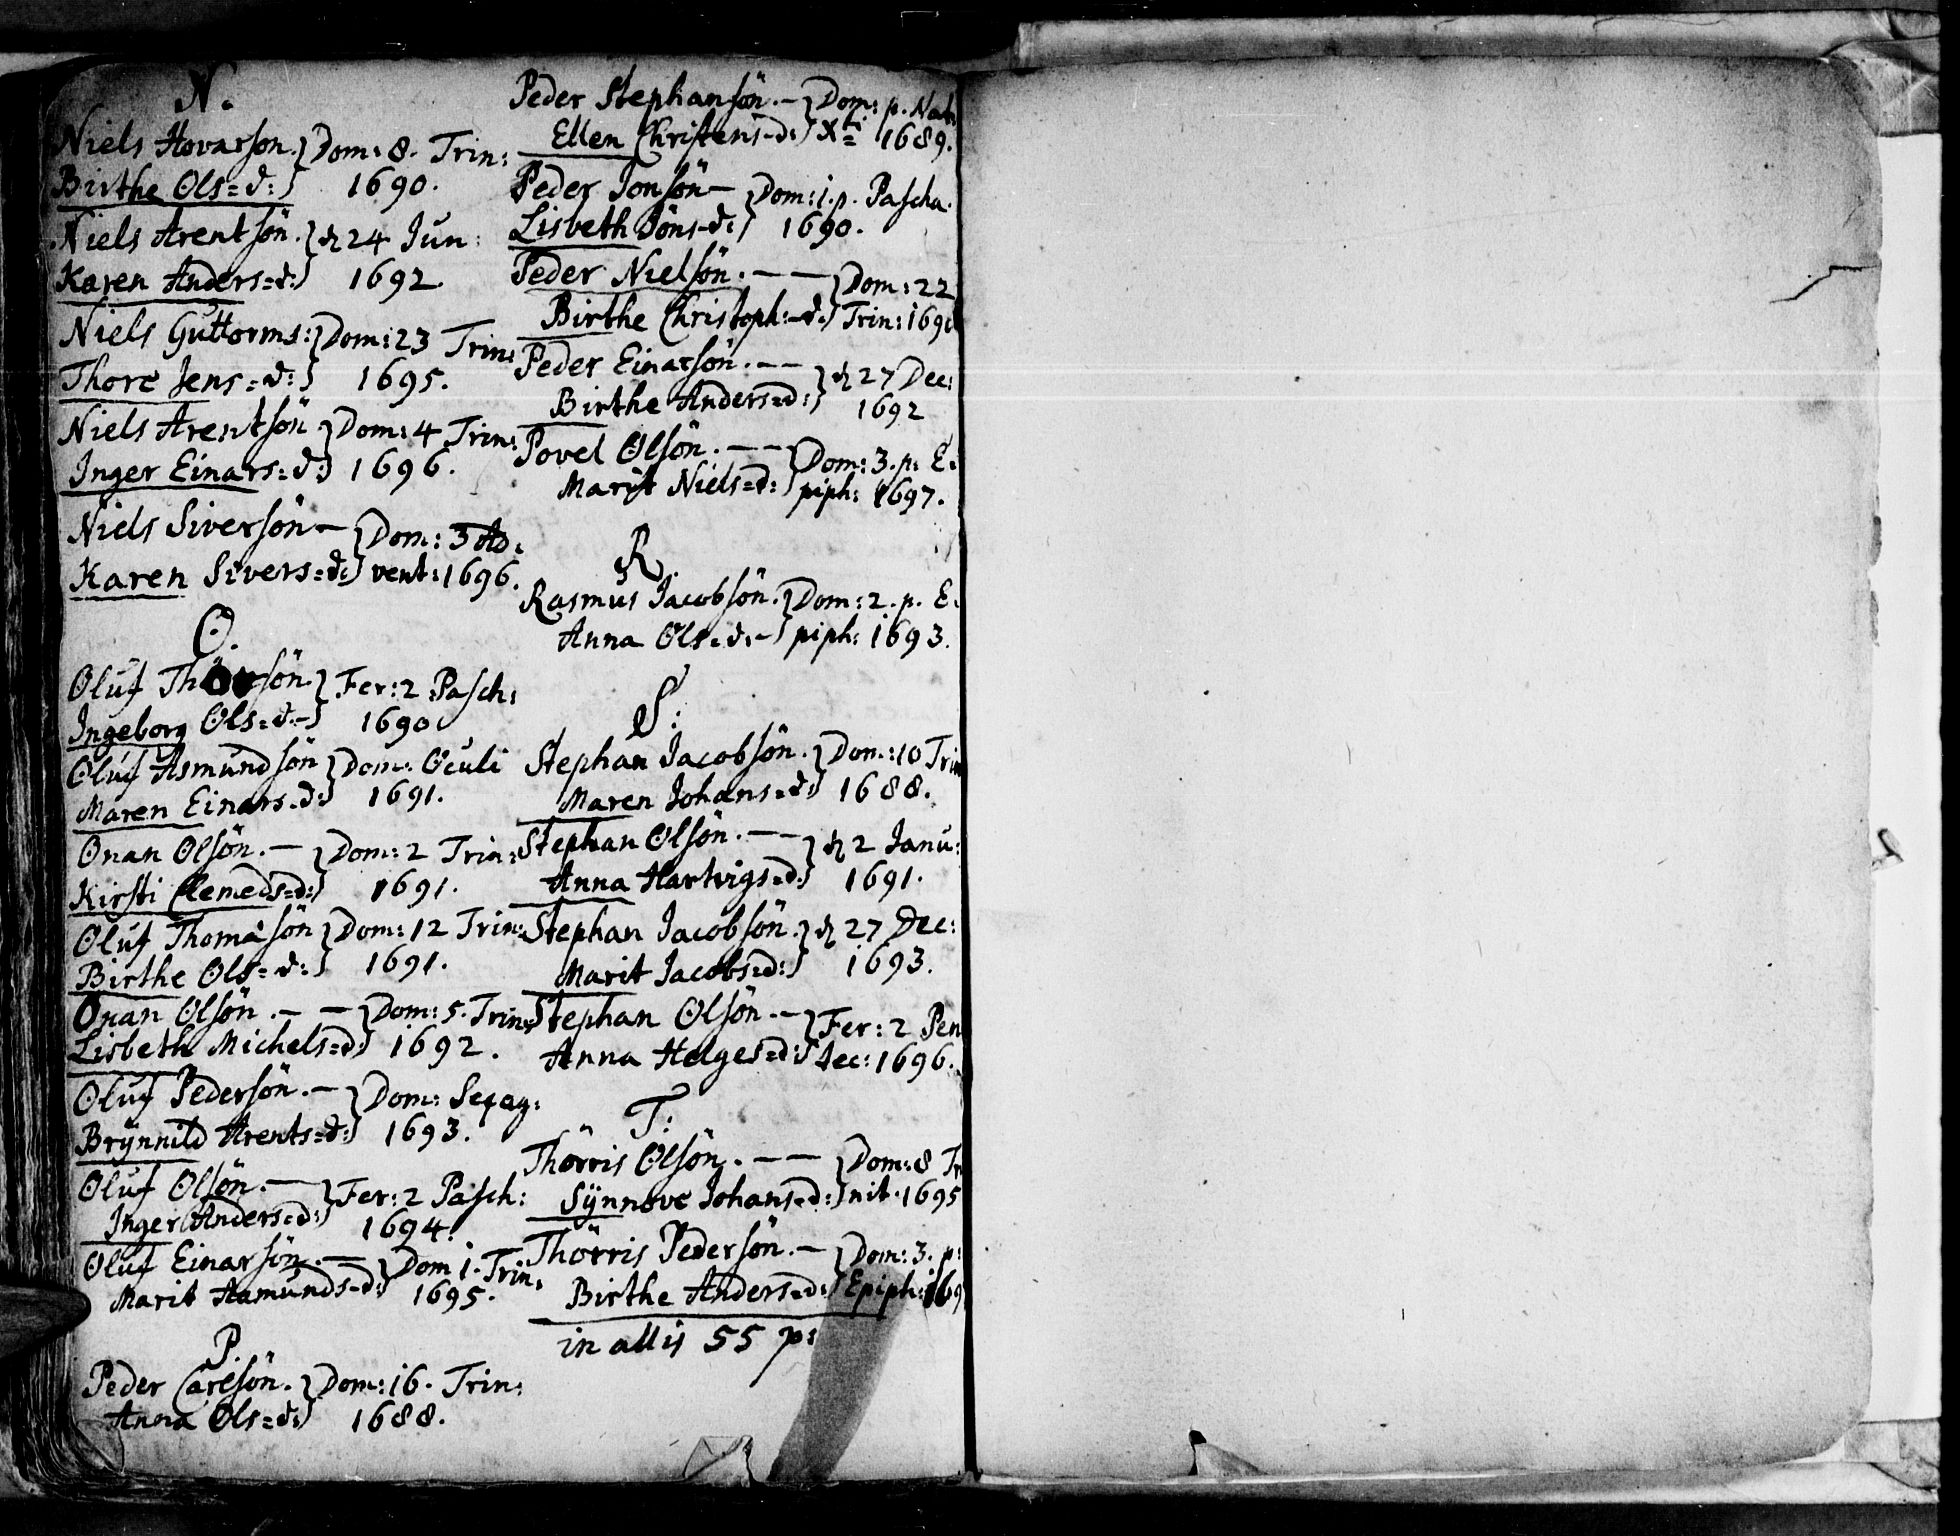 N.
Niels Hovarson. } Dom: 8. Trin:
Birthe Ols=d: } 1690.
Niels Arentsön. } d 24 Jun:
Karen Anders=d: } 1692.
Niels Guttorms: } Dom: 23 Trin:
Thore Jens=d: } 1695.
Niels Arentsön } Dom: 4 Trin:
Inger Einars=d: } 1696.
Niels Siversön – } Dom: 3 Ad:
Karen Sivers=d: } vent: 1696.
O.
Oluf sön } Fer: 2 Pasch:
Ingeborg Ols=d– } 1690
Oluf Asmundsön } Dom: Oculi
Maren Einars=d: } 1691.
Onan Olsön. – } Dom: 2 Trin:
Kirsti Clemeds=d: } 1691.
Oluf Thomasön } Dom: 12 Trin:
Birthe Ols=d: } 1691.
Onan Olsön. – – } Dom: 5. Trin:
Lisbeth Michels=d: } 1692.
Oluf Pedersön. – } Dom: Sexag:
Brynnild Arents=d: } 1693.
Oluf Olsön. – } Fer: 2 Pasch:
Inger Anders=d: } 1694.
Oluf Einarsön. – } Dom 1. Trin:
Marit Aamunds=d: } 1695.
P.
Peder Carlsön. } Dom: 16. Trin:
Anna Ols=d: } 1688.
Peder Stephansön. – } Dom: p. Nat:
Ellen Christens=d: } Xti 1689.
Peder Jonsön – } Dom: 1. p. Pascha.
Lisbeth Jöns=d: } 1690.
Peder Nielsön. – – } Dom: 22
Birthe Christoph:=d: } Trin: 169
Peder Einarsön. – – } d 27 Dec:
Birthe Anders=d: } 1692
Povel Olsön. – – } Dom: 3. p. E.
Marit Niels=d: } piph: 1697.
R.
Rasmus Jacobsön. } Dom: 2. p. E.
Anna Ols=d:– } piph: 1693.
S:
Stephan Jacobsön. } Dom: 10 Trin
Maren Johans=d: } 1688.
Stephan Olsön. – – } d 2 Janu:
Anna Hartvigs=d: } 1691.
Stephan Jacobsön. } d 27 Dec:
Marit Jacobs=d: } 1693.
Stephan Olsön. – } Fer: 2 Pen
Anna Helges=d: } tec: 1696.
T:
Thörris Olsön. – – } Dom: 8 Tri
Synnove Johans=d: } nit. 1695
Thörris Pedersön. – } Dom: 3. p:
Birthe Anders=d: } Epiph: 169
in allis 55 p: